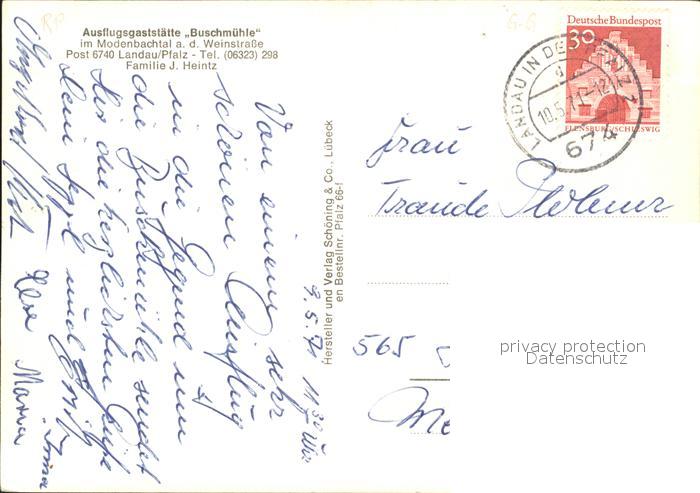 Ausflugsgaststätte „Buschmühle"
im Modenbachtal a. d. Weinstraße
Post 6740 Landau/Pfalz - Tel. (06323) 298
Familie J. Heintz
9.5.71 11³⁰ Uhr
Von einem sehr
schönen Ausflug
in die Gegend um
die Buschmühle sendet
Dir die herzlichsten Grüße
Dein und Fritz
Maria
Hersteller und Verlag Schöning & Co., Lübeck
en Bestellnr. Pfalz 66-f
RP
G-G
Deutsche Bundespost
30
FLENSBURG/SCHLESWIG
LANDAU IN DER PFALZ 1
d
10.5.71-12
674
Frau
Traude
565
privacy protection
Datenschutz